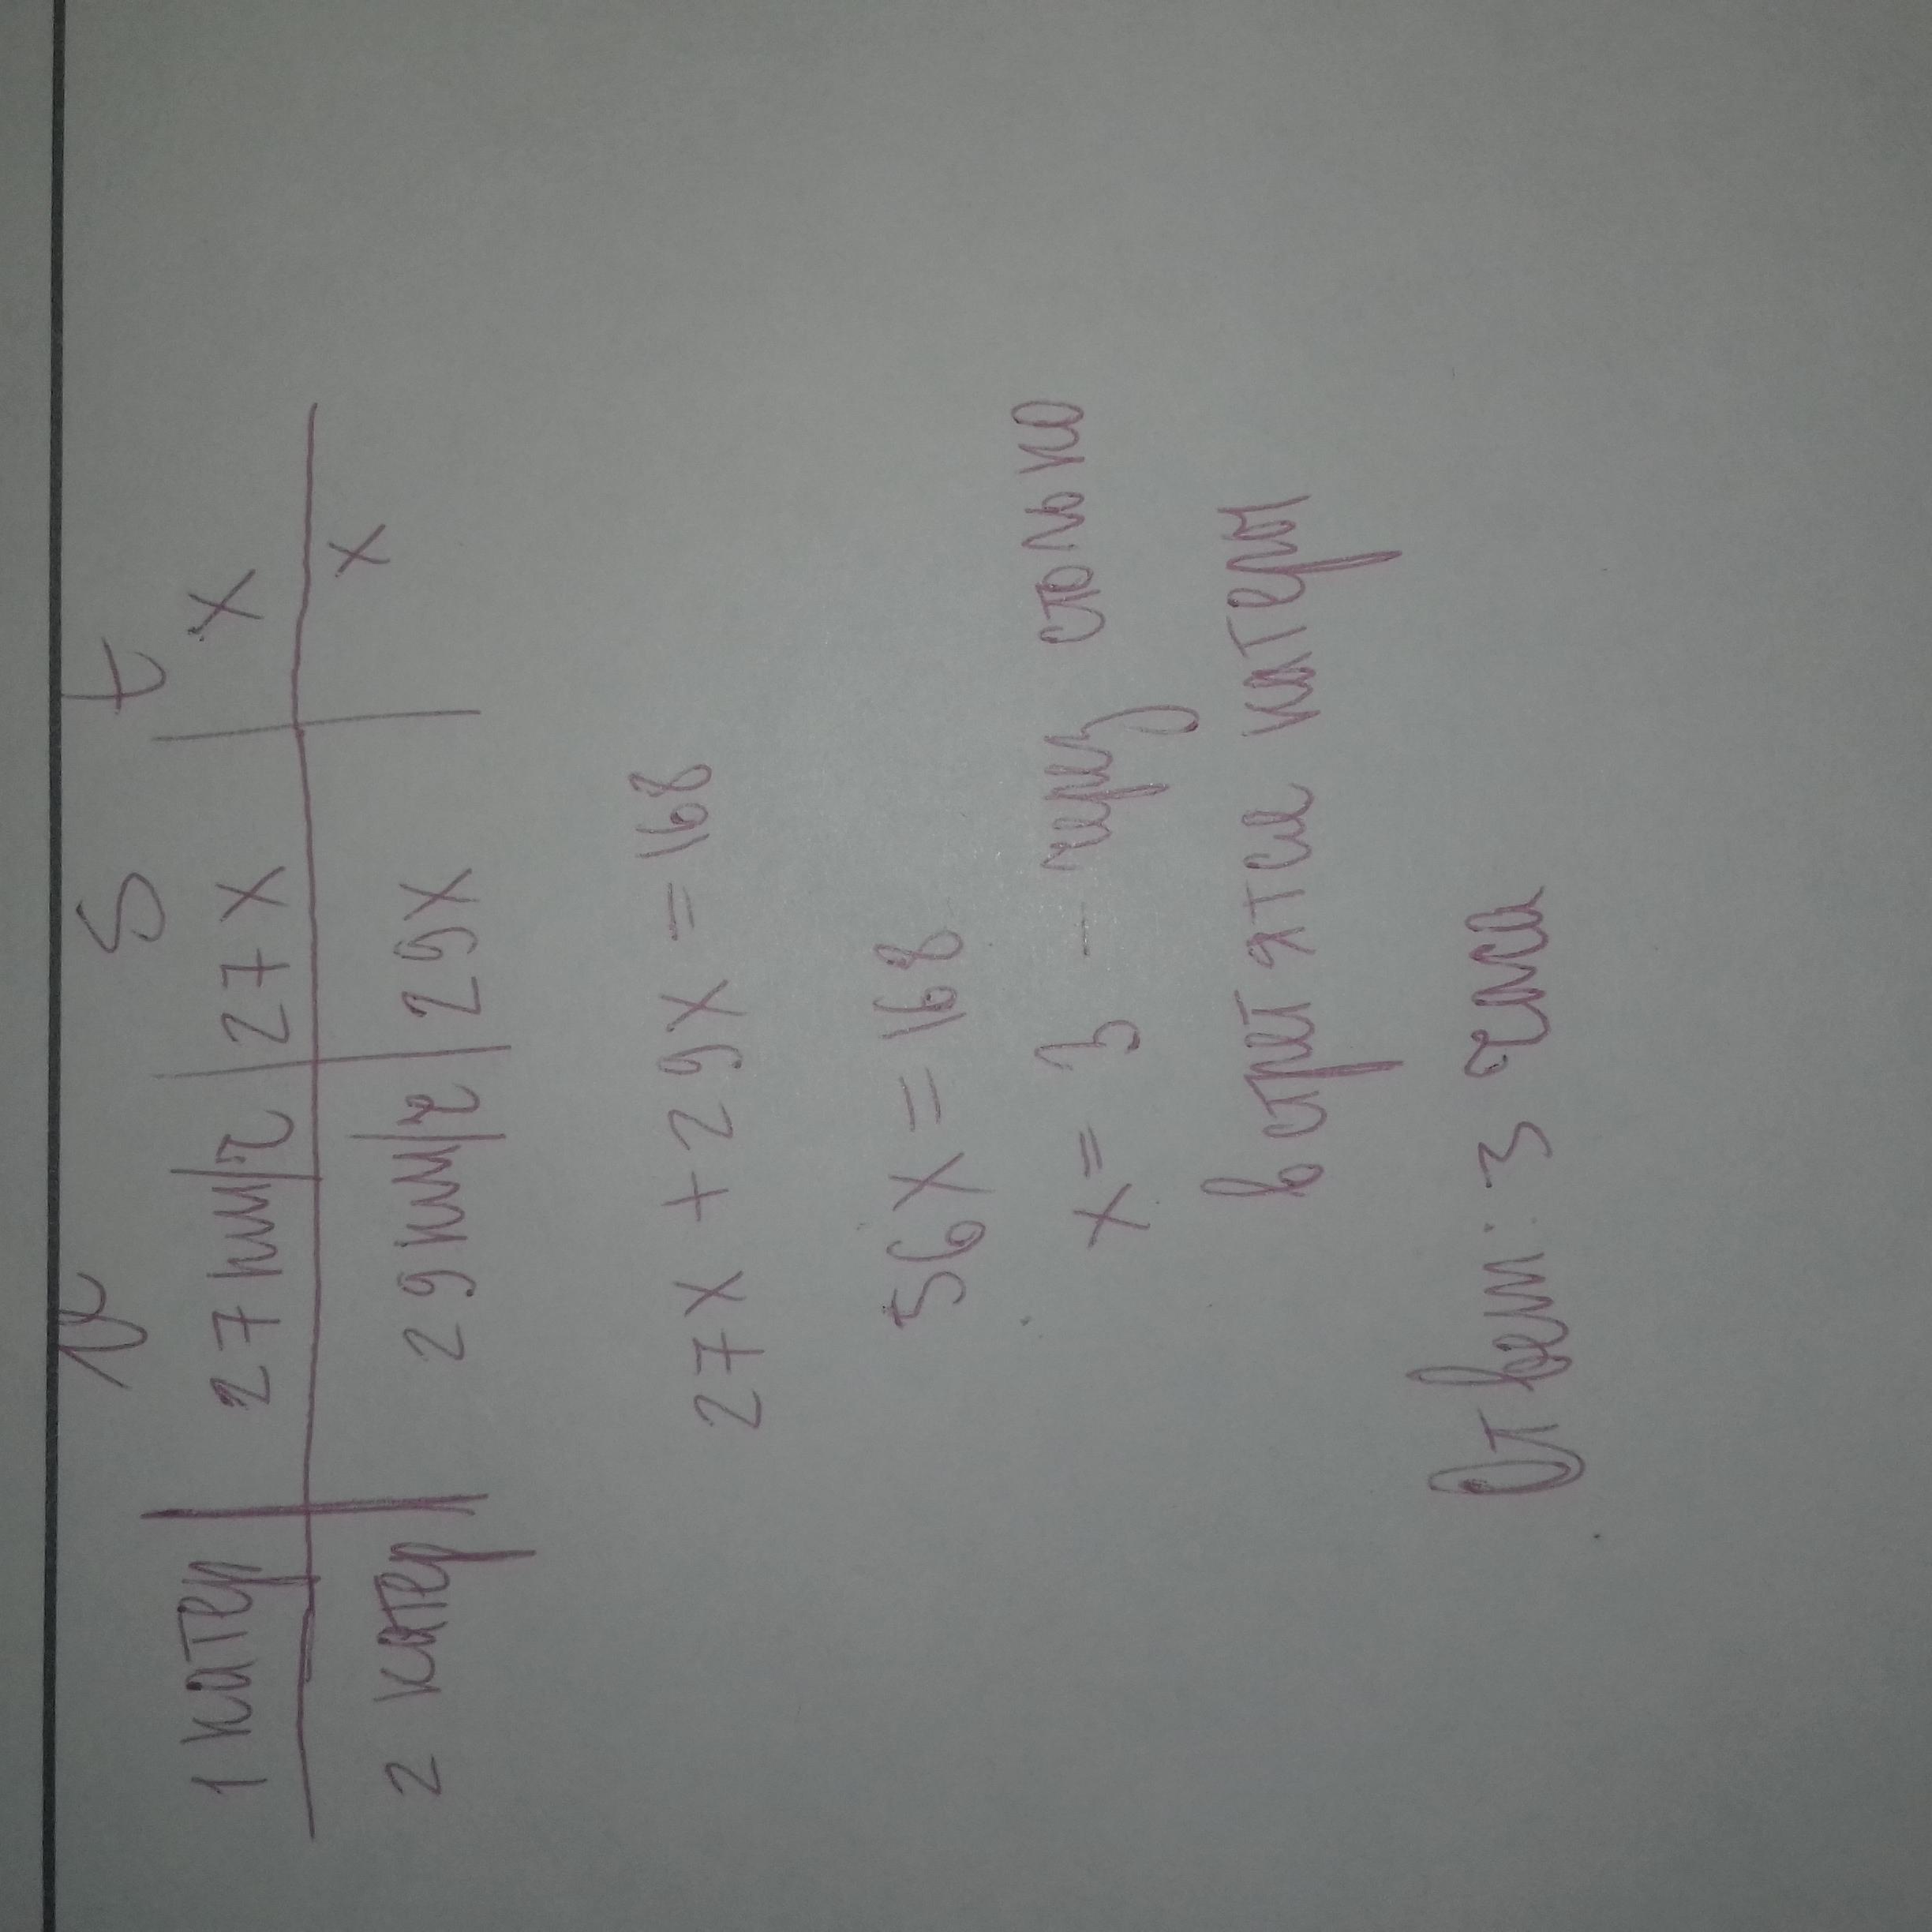 v S t
1 катер 27 км/ч 27x x
2 катер 29 км/ч 29x x
27x + 29x = 168
56x = 168
x = 3 - через столько
встретятся катеры
Ответ: 3 часа